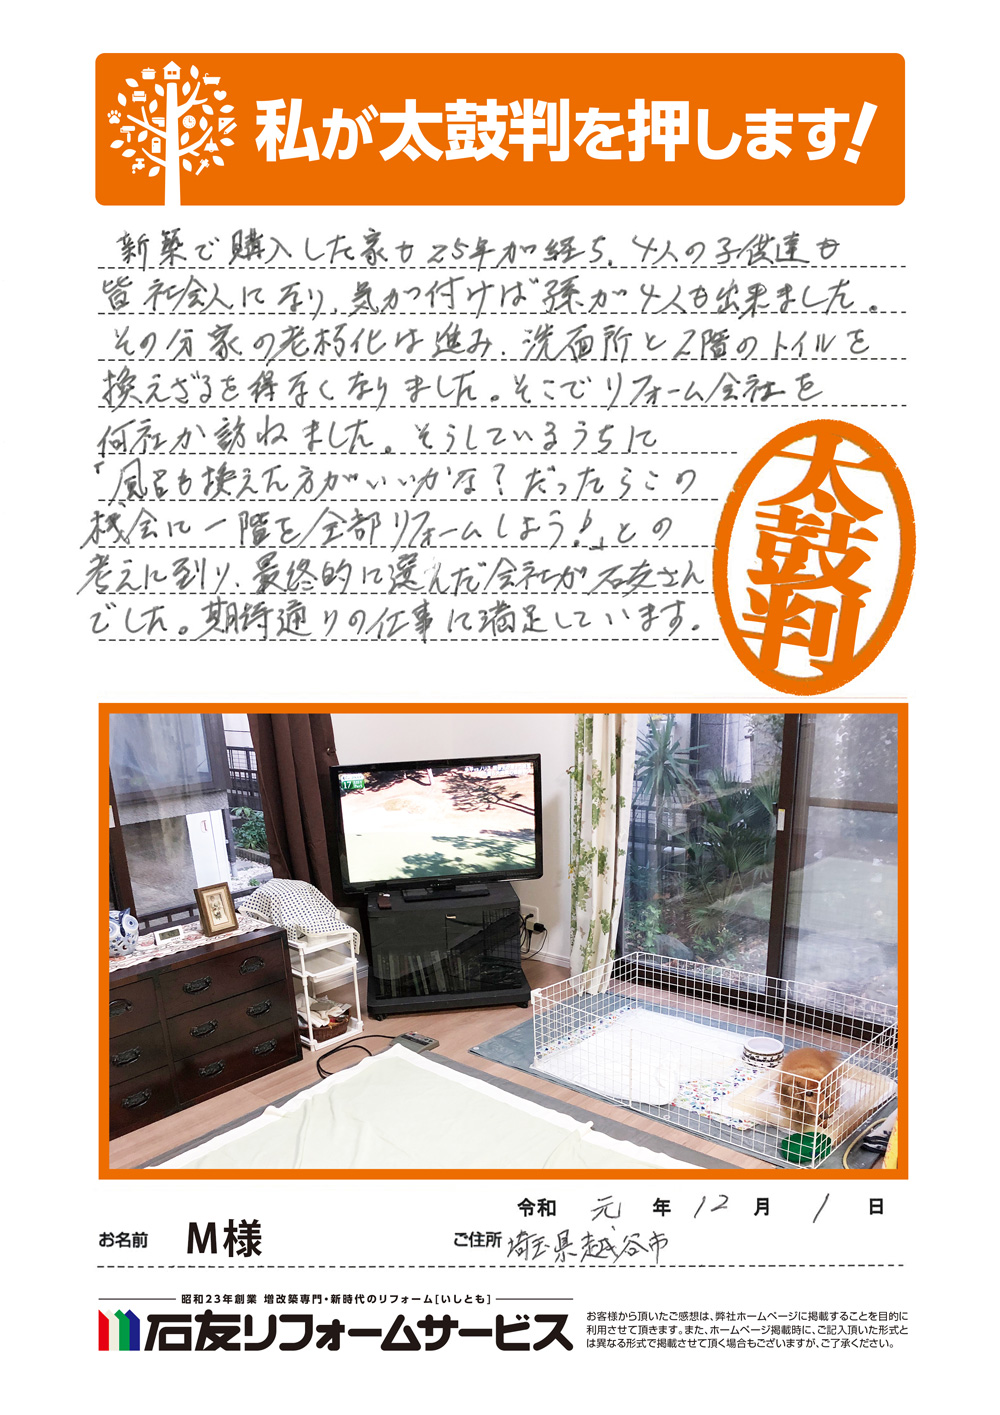 私が太鼓判を押します!
新築で購入した家も25年が経ち、4人の子供達も
皆社会人になり、気が付けば孫が4人も出来ました。
その分家の老朽化は進み、洗面所と2階のトイレを
換えざるを得なくなりました。そこでリフォーム会社を
何社か訪ねました。そうしているうちに
「風呂も換えた方がいいかな?だったらこの
機会に一階を全部リフォームしよう!」との
考えに到り、最終的に選んだ会社が石友さん
でした。期待通りの仕事に満足しています。
太鼓判
17
令和 元 年 12 月 1 日
お名前 M様 ご住所 埼玉県越谷市
昭和23年創業 増改築専門・新時代のリフォーム[いしとも]
石友リフォームサービス
お客様から頂いたご感想は、弊社ホームページに掲載することを目的に
利用させて頂きます。また、ホームページ掲載時に、ご記入頂いた形式と
は異なる形式で掲載させて頂く場合もございますが、ご了承ください。